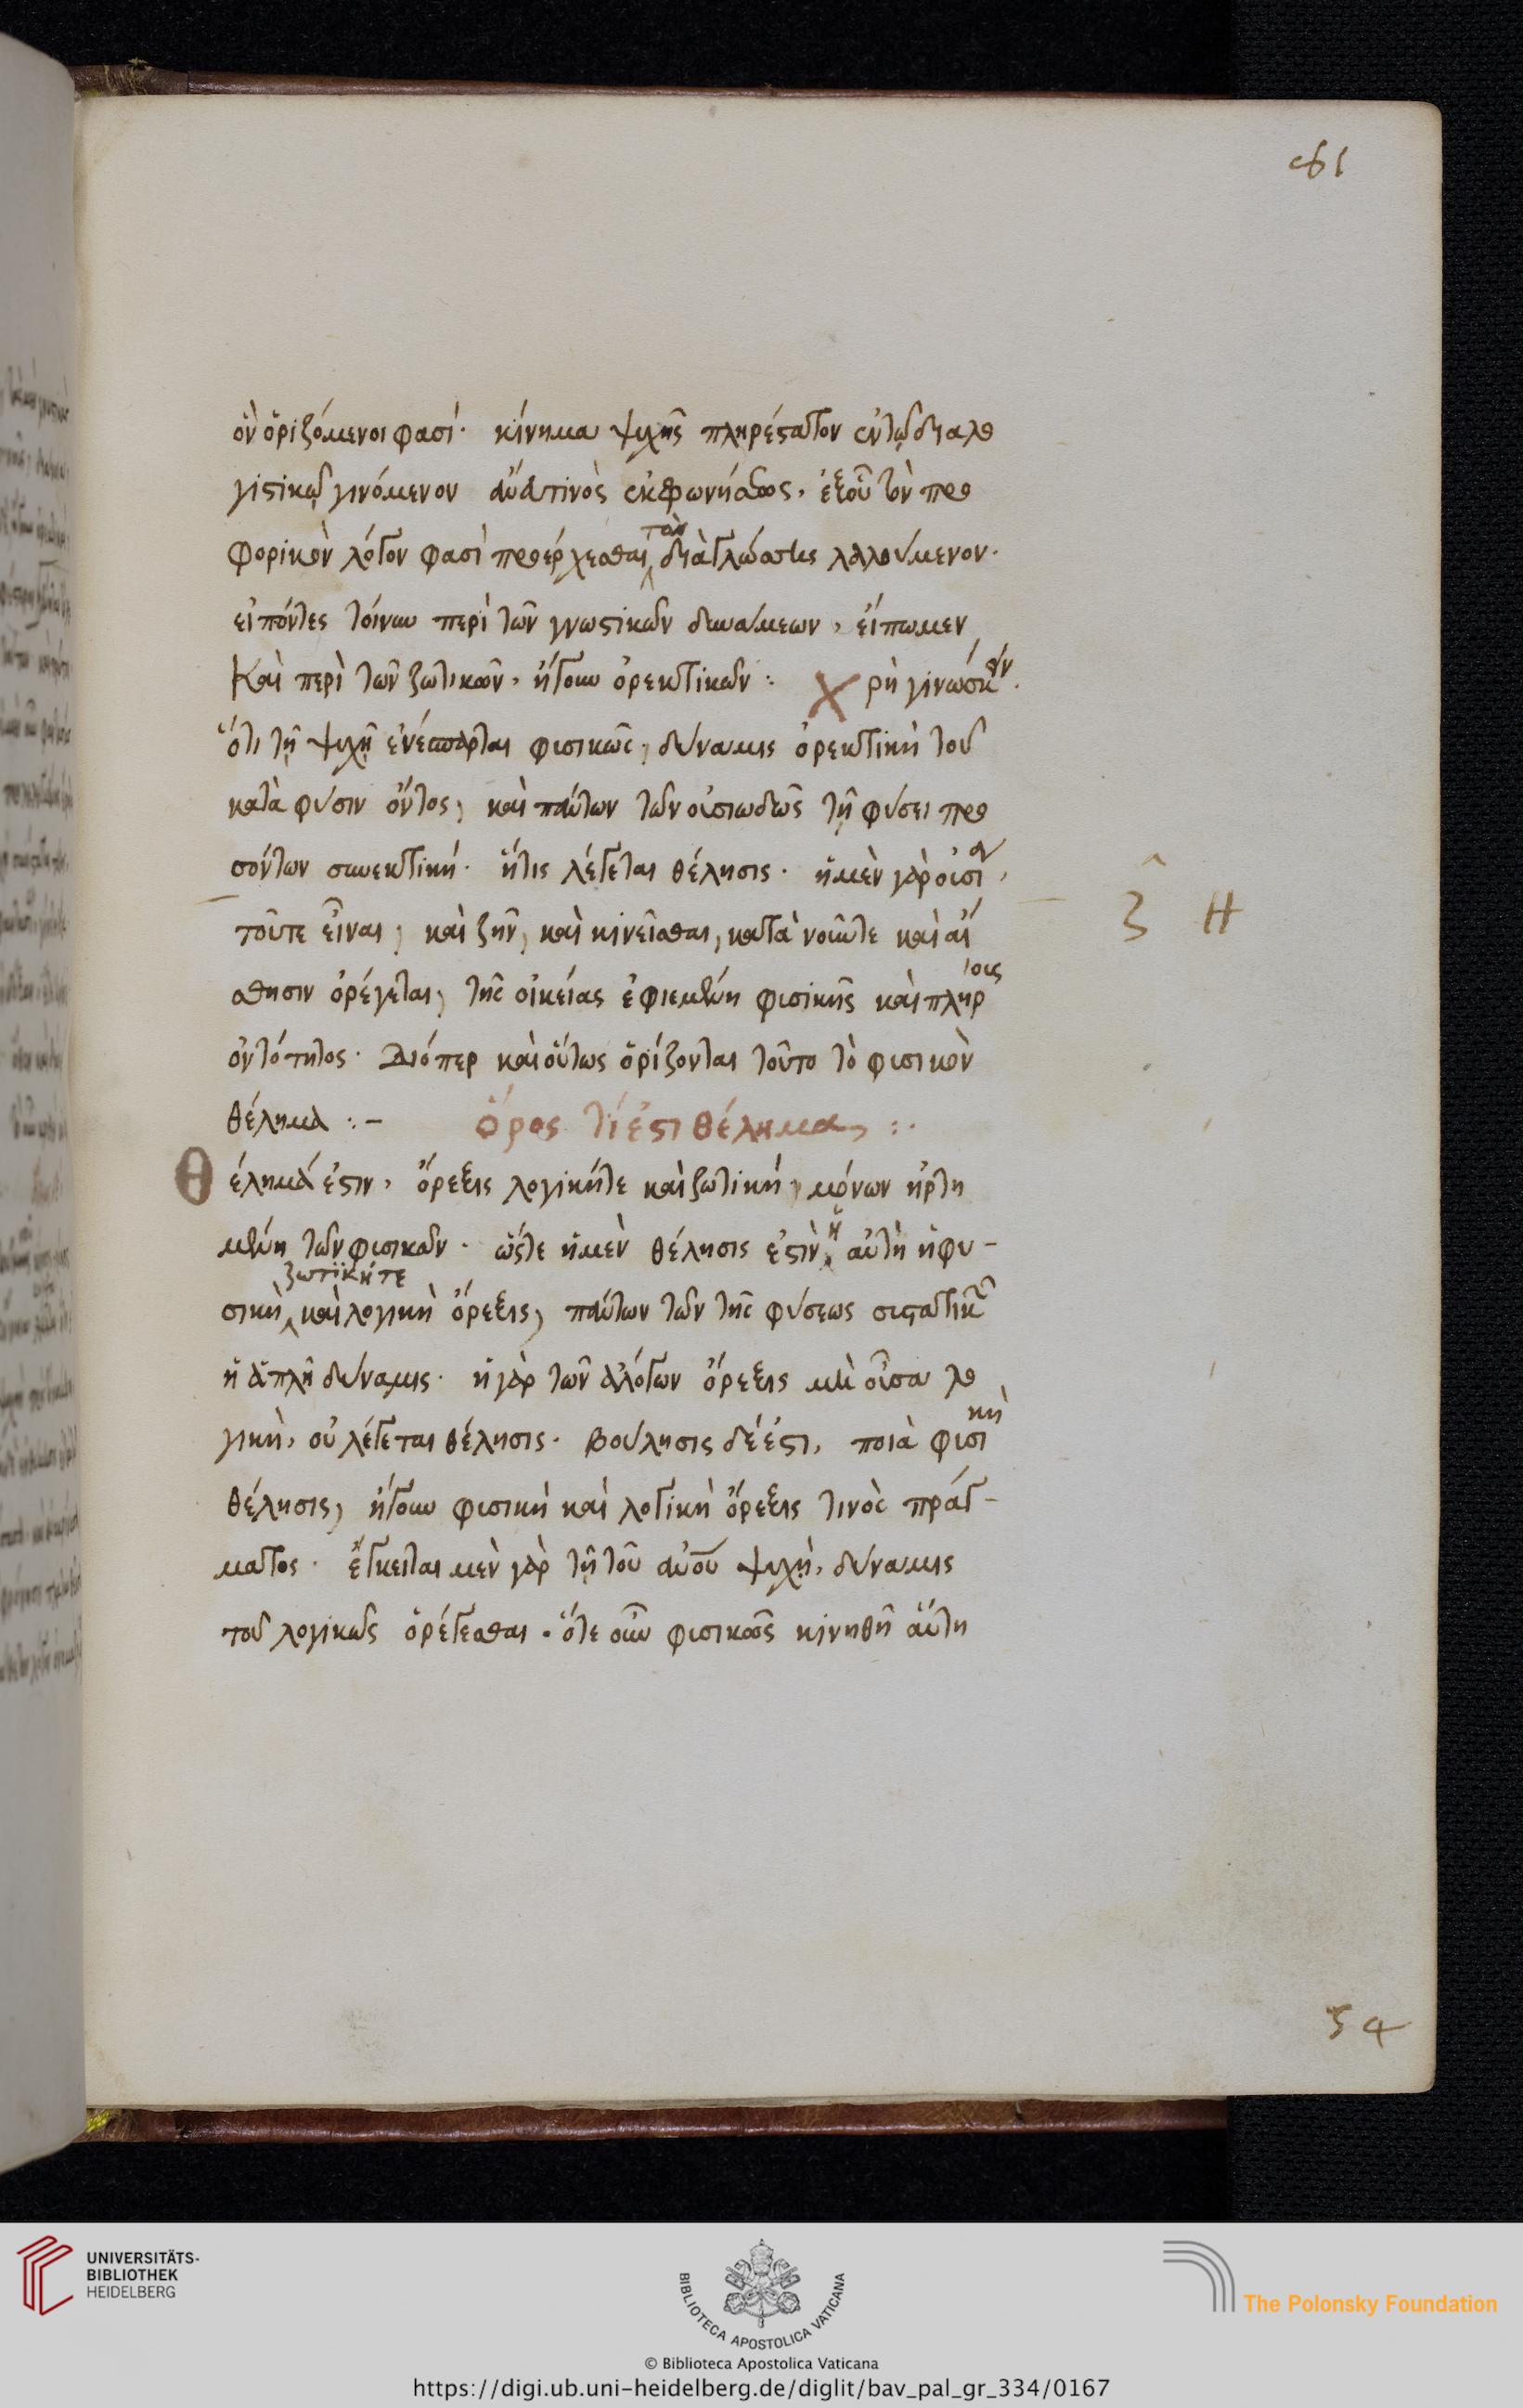 61
ὃν ὁριζόμενοι φασί· κίνημα ψυχῆς πληρέστατον ἐν τῷ διαλο
γιστικῷ γινόμενον ἄνευ τινὸς ἐκφωνήσεως, ἐξ οὗ τὸν προ
φορικὸν λόγον φασὶ προέρχεσθαι τὸν διὰ γλώσσης λαλούμενον·
εἰπόντες τοίνυν περὶ τῶν γνωστικῶν δυνάμεων, εἴπωμεν
Καὶ περὶ τῶν ζωτικῶν, ἤγουν ὀρεκτικῶν : Χρὴ γινώσκειν·
ὅτι τῇ ψυχῇ ἐνέσπαρται φυσικῶς, δύναμις ὀρεκτικὴ τοῦ
κατὰ φύσιν ὄντος, καὶ πάντων τῶν οὐσιωδῶς τῇ φύσει προ
σόντων συνεκτική· ἥτις λέγεται θέλησις· ἡ μὲν γὰρ οὐσία,
τοῦτε εἶναι, καὶ ζῆν, καὶ κινεῖσθαι, κατὰ νοῦντε καὶ αἴ
σθησιν ὀρέγεται, τῆς οἰκείας ἐφιεμένη φυσικῆς καὶ πλήρους
ὀντότητος· Διόπερ καὶ οὕτως ὁρίζονται τοῦτο τὸ φυσικὸν
θέλημα :- ὅρος τί ἐστι θέλημα :·
Θέλημά ἐστιν, ὄρεξις λογικήτε καὶ ζωτικὴ, μόνων ἠρτη
μένη τῶν φυσικῶν· ὥστε ἡ μὲν θέλησις ἐστὶν ἡ αὐτὴ ἡ φυ-
σικὴ ζωτικήτε καὶ λογικὴ ὄρεξις, πάντων τῶν τῆς φύσεως συστατικῶν
ἡ ἁπλῆ δύναμις· ἡ γὰρ τῶν ἀλόγων ὄρεξις μὴ οὖσα λο
γικὴ, οὐ λέγεται θέλησις· Βούλησις δέ ἐστι, ποιὰ φυσικὴ
θέλησις, ἤγουν φυσικὴ καὶ λογικὴ ὄρεξις τινὸς πράγ-
ματος· ἔγκειται μὲν γὰρ τῇ τοῦ ἀνου ψυχῇ, δύναμις
τοῦ λογικῶς ὀρέγεσθαι· ὅτε οὖν φυσικῶς κινηθῇ αὕτη
54
UNIVERSITÄTS-
BIBLIOTHEK
HEIDELBERG
BIBLIOTECA APOSTOLICA VATICANA
The Polonsky Foundation
© Biblioteca Apostolica Vaticana
https://digi.ub.uni-heidelberg.de/diglit/bav_pal_gr_334/0167